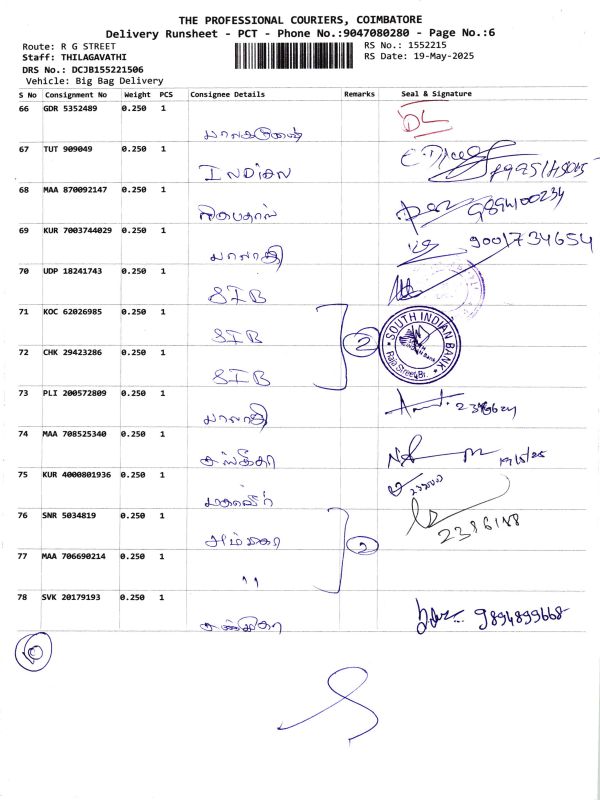 THE PROFESSIONAL COURIERS, COIMBATORE
Delivery Runsheet - PCT - Phone No.:9047080280 - Page No.:6
Route: R G STREET
RS No.: 1552215
Staff: THILAGAVATHI
RS Date: 19-May-2025
DRS No.: DCJB155221506
Vehicle: Big Bag Delivery
S No Consignment No Weight PCS Consignee Details Remarks Seal & Signature
66 GDR 5352489 0.250 1
DL
67 TUT 909049 0.250 1
INDIAN
68 MAA 870092147 0.250 1
9894100234
69 KUR 7003744029 0.250 1
பாலாஜி 9001734654
70 UDP 18241743 0.250 1
SIB
71 KOC 62026985 0.250 1
SIB
2
SOUTH INDIAN BANK
Raja Street Br.
72 CHK 29423286 0.250 1
SIB
73 PLI 200572809 0.250 1
பாலாஜி
74 MAA 708525340 0.250 1
19/5/25
75 KUR 4000801936 0.250 1
76 SNR 5034819 0.250 1
அம்பிகா 2
77 MAA 706690214 0.250 1
"
78 SVK 20179193 0.250 1
9894899668